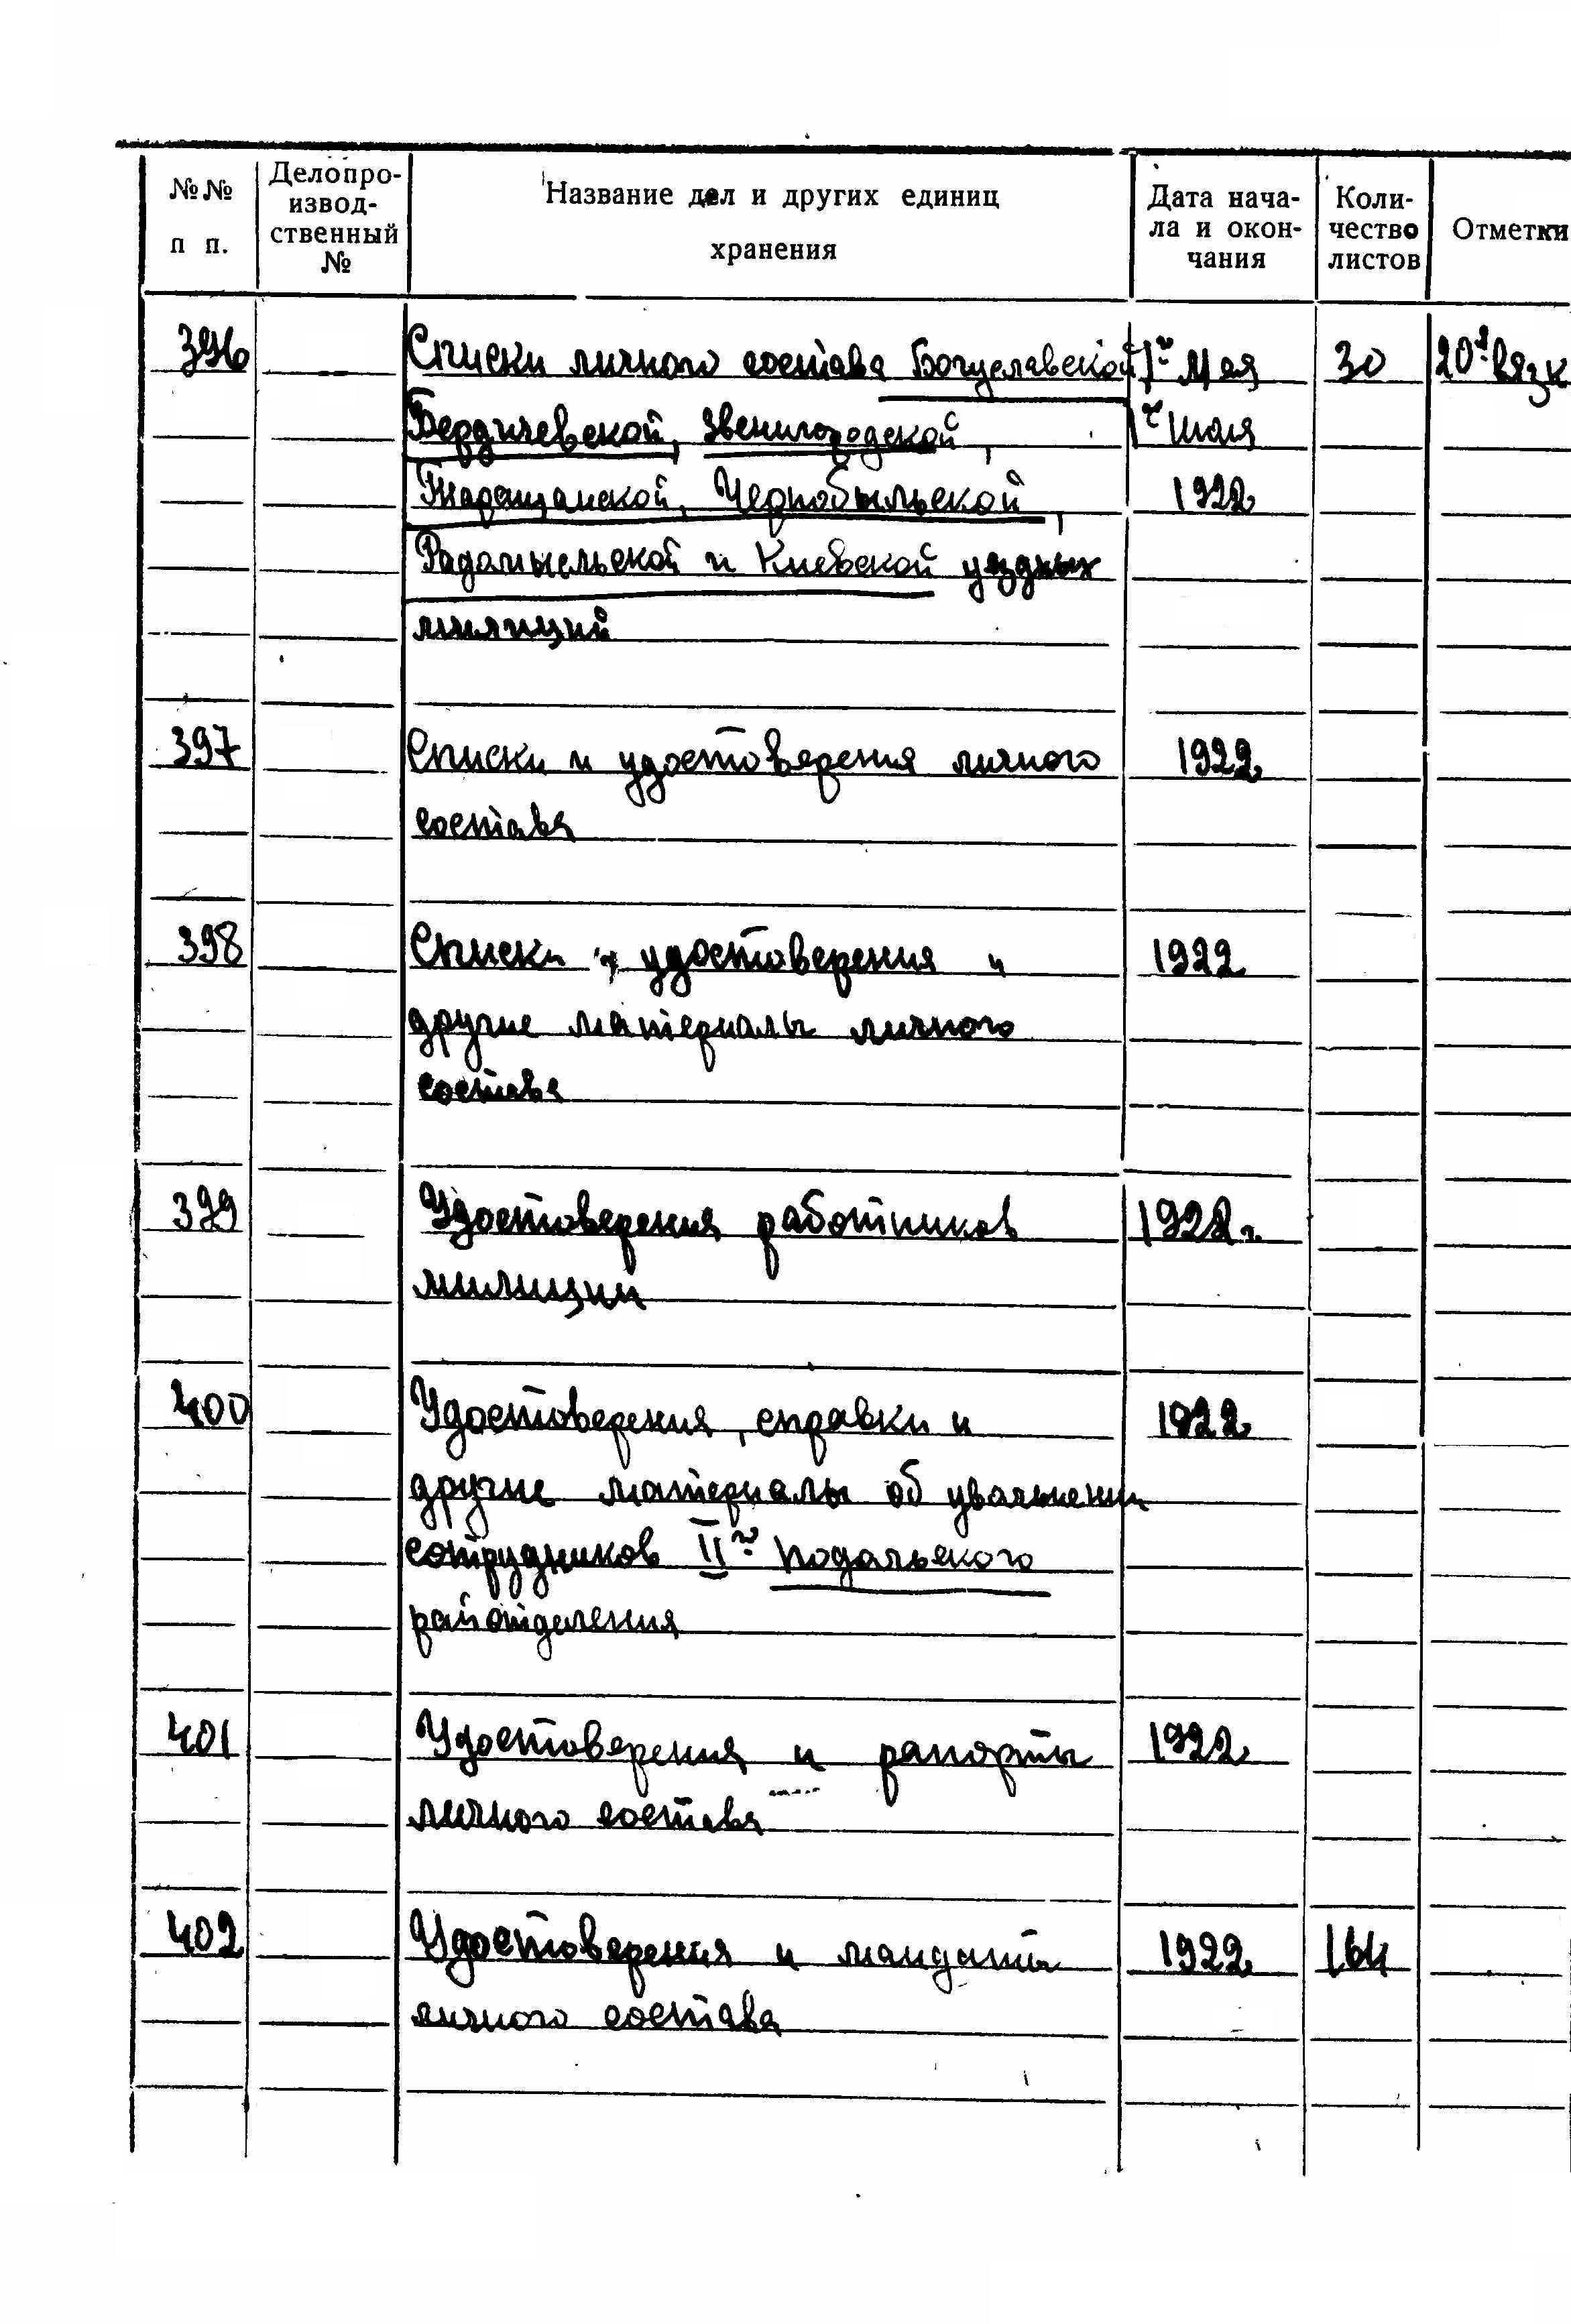 №№ п п.
Делопро-
извод-
ственный
№
Название дел и других единиц
хранения
Дата нача-
ла и окон-
чания
Коли-
чество
листов
Отметки
396 Списки личного состава Богуславской, 1го Мая 30 20я вязк
Бердичевской, Звенигородской,
Таращанской, Чернобыльской, 1922
Радомысльской и Киевской уездных
милиций
397 Списки и удостоверения личного 1922
состава
398 Списки, удостоверения и 1922
другие материалы личного
состава
399 Удостоверения работников 1922 г.
милиции
400 Удостоверения, справки и 1922
другие материалы об увольнении
сотрудников II го Подольского
райотделения
401 Удостоверения и рапорты 1922
личного состава
402 Удостоверения и мандаты 1922
личного состава